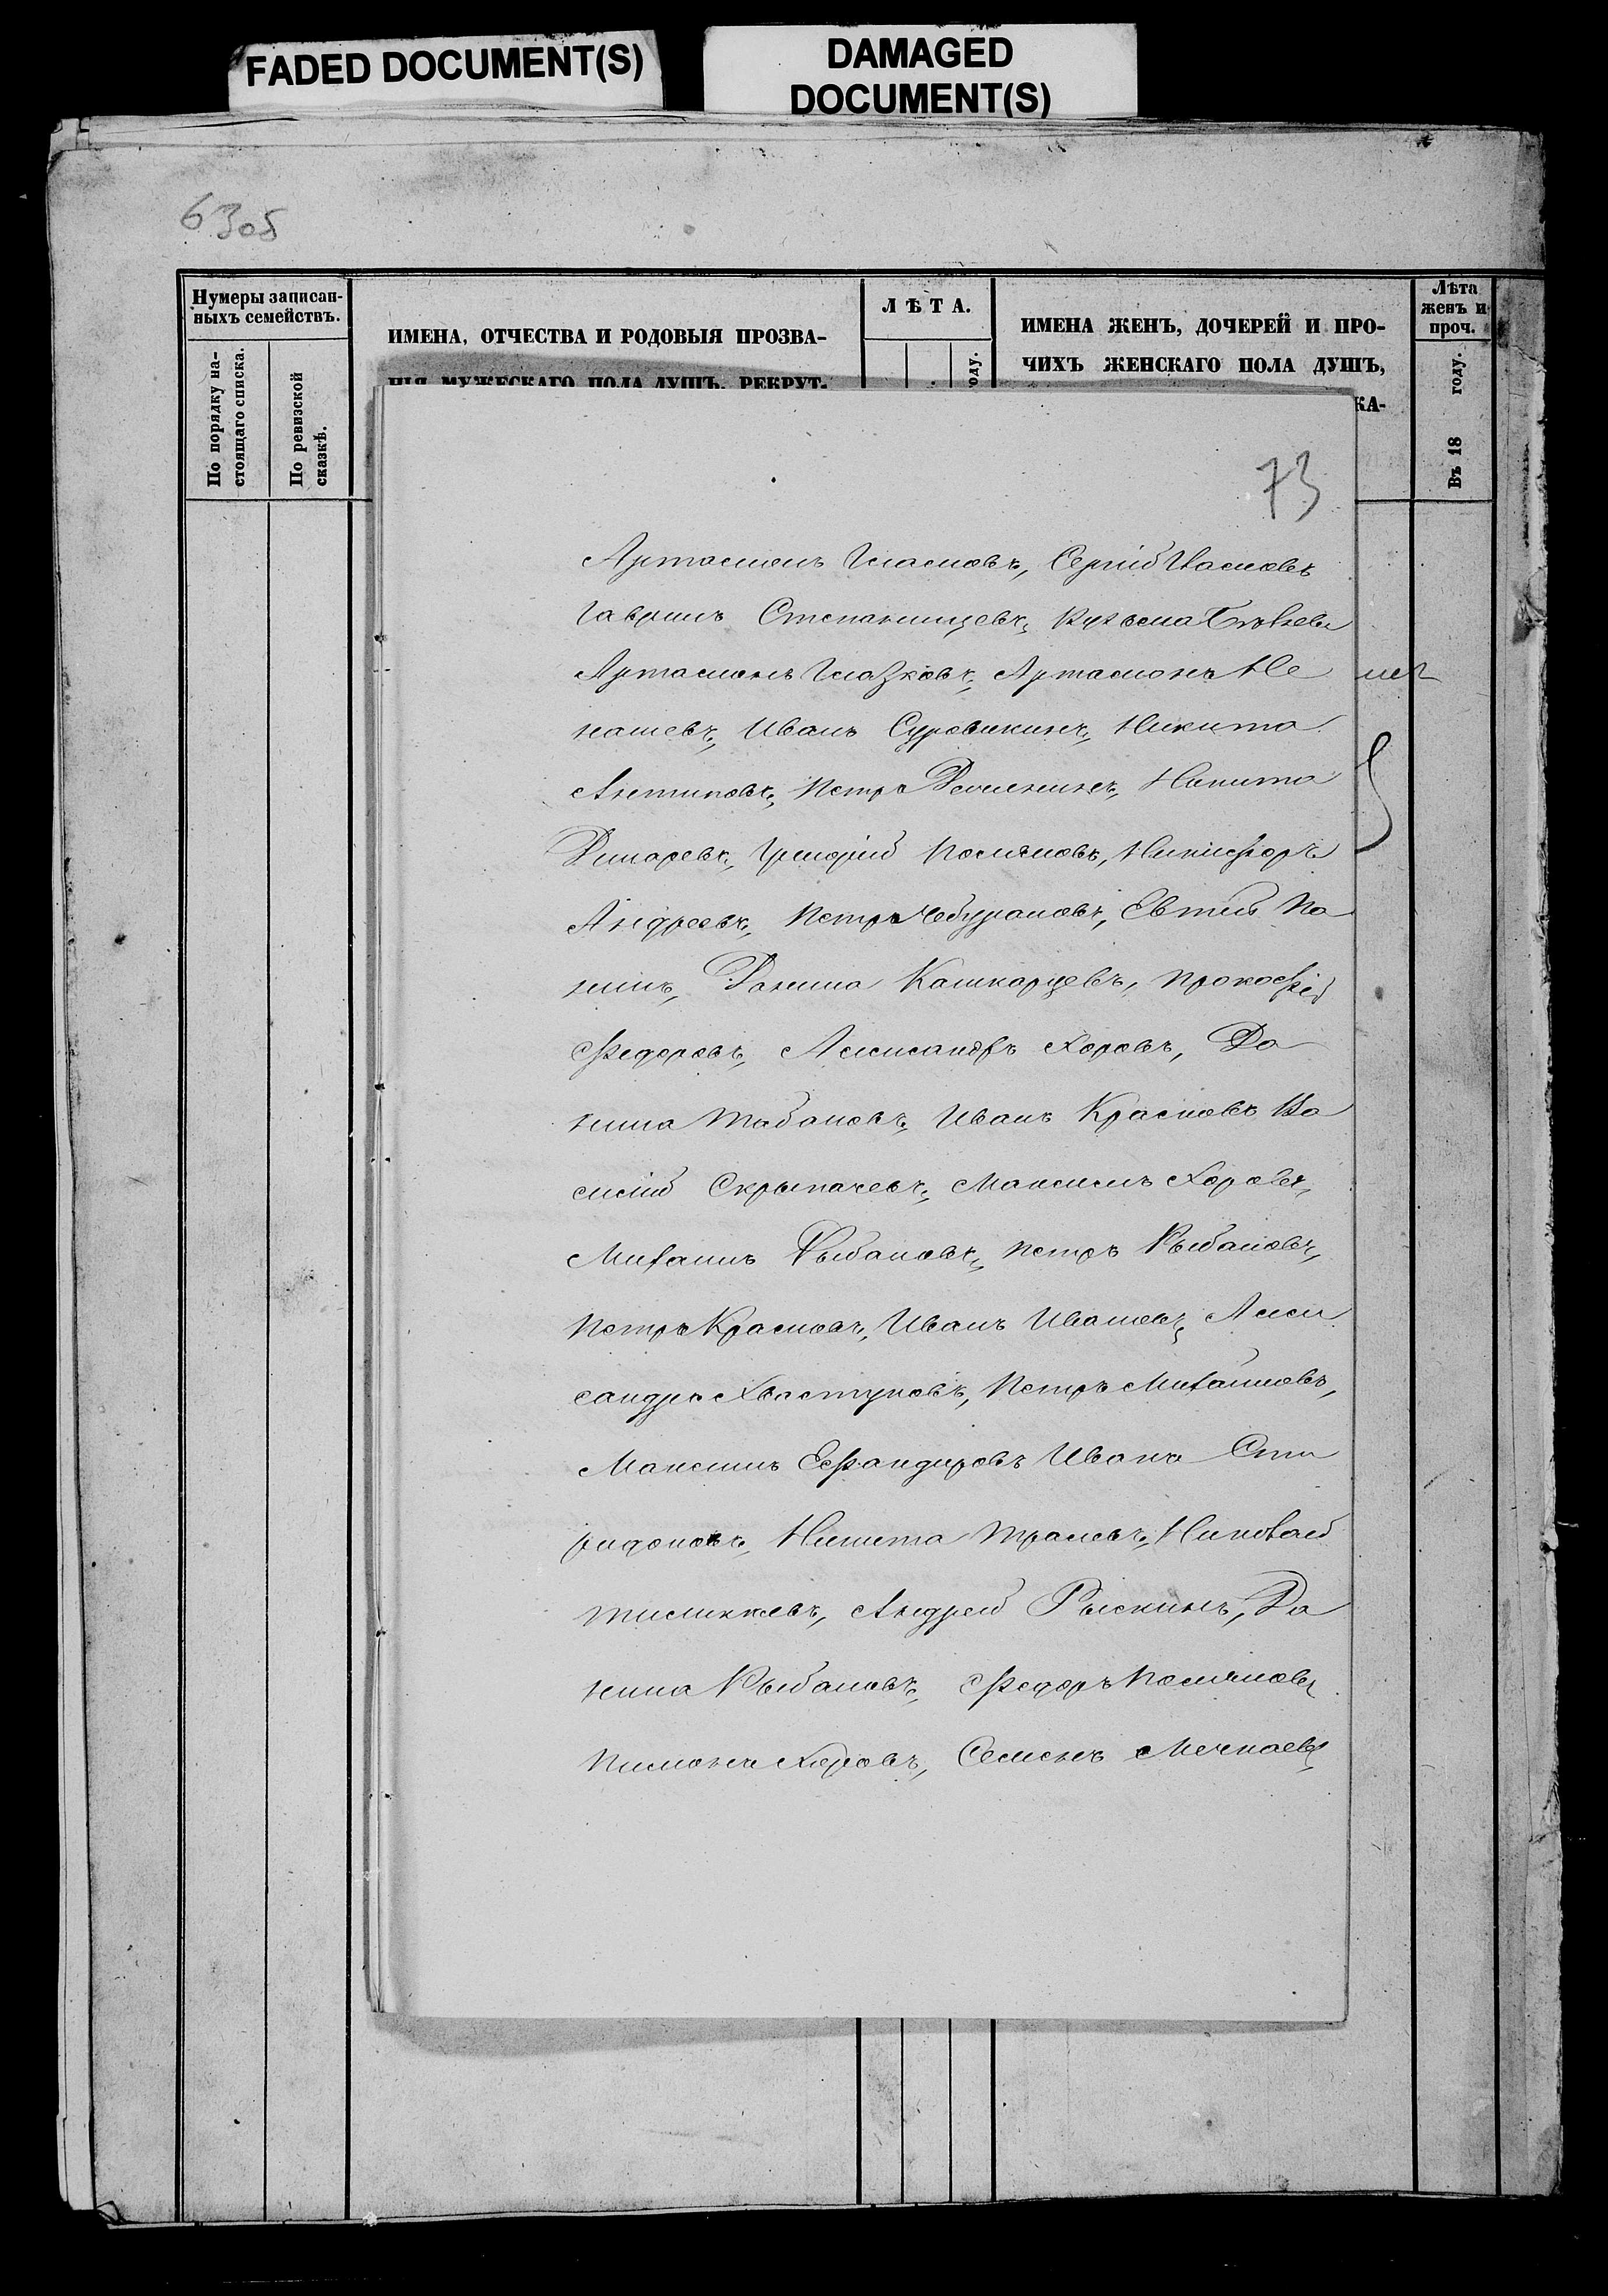 FADED DOCUMENT(S)
DAMAGED
DOCUMENT(S)
6305
Нумеры записан-
ныхъ семействъ.
По порядку на-
стоящаго списка.
По ревизской
сказкѣ.
ИМЕНА, ОТЧЕСТВА И РОДОВЫЯ ПРОЗВА-
НІЯ МУЖЕСКАГО ПОЛА ДУШЪ, РЕКРУТ-
ЛѢТА.
оду.
ИМЕНА ЖЕНЪ, ДОЧЕРЕЙ И ПРО-
ЧИХЪ ЖЕНСКАГО ПОЛА ДУШЪ,
КА-
Лѣта
женъ и
проч.
Въ 18 году.
73
Артамонъ Сергій
Гаврилъ Кузьма
Артамонъ Глазковъ, Артамонъ Не
нашевъ, Иванъ Суровикинъ, Никита
Антиповъ, Петръ Никита
Григорій Поляковъ, Никифоръ
Андреевъ, Петръ Чебураковъ, Евтей Па
нинъ, Данила Кашкарцевъ, Прокофій
Федоровъ, Александръ Харовъ, Да
нила Табаковъ, Иванъ Красновъ Ва
силій Максимъ Харовъ,
Михаилъ Рыбаковъ, Петръ Рыбаковъ,
Петръ Красновъ, Иванъ Алек
сандръ Хвастуновъ, Петръ Михайловъ,
Максимъ Иванъ Спи
ридоновъ, Никита Николай
Андрей Рыскинъ, Да
нила Рыбаковъ, Федоръ Поляковъ
Пимонъ Харовъ, Семенъ